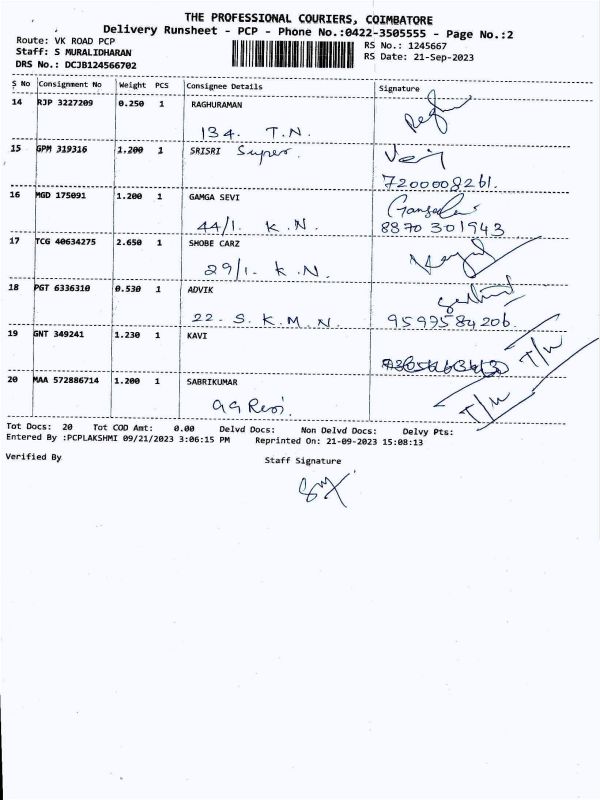 THE PROFESSIONAL COURIERS, COIMBATORE
Delivery Runsheet - PCP - Phone No.:0422-3505555 - Page No.:2
Route: VK ROAD PCP RS No.: 1245667
Staff: S MURALIDHARAN RS Date: 21-Sep-2023
DRS No.: DCJB124566702
S No Consignment No Weight PCS Consignee Details Signature
14 RJP 3227209 0.250 1 RAGHURAMAN
134. T.N.
15 GPM 319316 1.200 1 SRISRI Super.
7200008261.
16 MGD 175091 1.200 1 GAMGA SEVI
44/1. K.N. 8870 301943
17 TCG 40634275 2.650 1 SHOBE CARZ
29/1. K.N.
18 PGT 6336310 0.530 1 ADVIK
22. S.K.M.N. 9597584206.
19 GNT 349241 1.230 1 KAVI
20 MAA 572886714 1.200 1 SABRIKUMAR
Tot Docs: 20 Tot COD Amt: 0.00 Delvd Docs: Non Delvd Docs: Delvy Pts:
Entered By :PCPLAKSHMI 09/21/2023 3:06:15 PM Reprinted On: 21-09-2023 15:08:13
Verified By Staff Signature